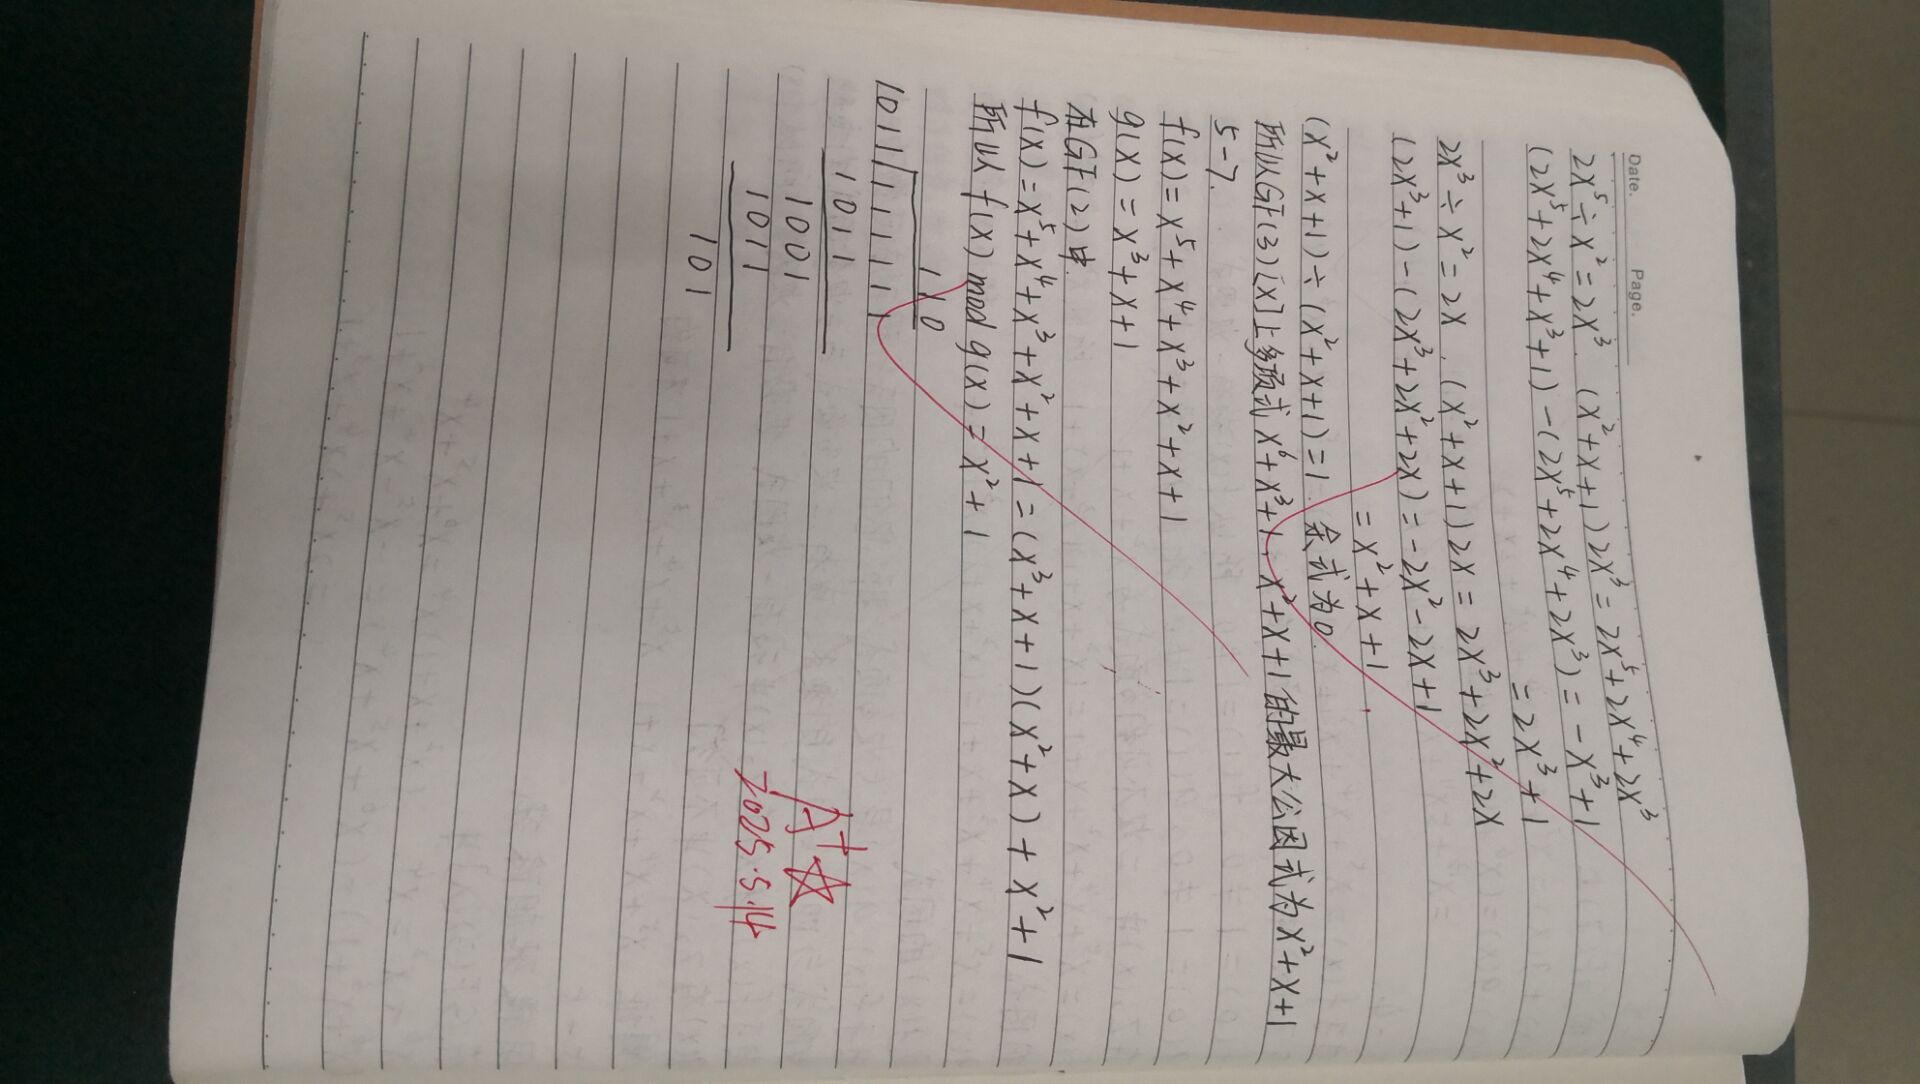 Date. Page.
2x⁵÷x²=2x³. (x²+x+1)2x³=2x⁵+2x⁴+2x³
(2x⁵+2x⁴+x³+1)-(2x⁵+2x⁴+2x³)=-x³+1
=2x³+1
2x³÷x²=2x. (x²+x+1)2x=2x³+2x²+2x
(2x³+1)-(2x³+2x²+2x)=-2x²-2x+1
=x²+x+1.
(x²+x+1)÷(x²+x+1)=1. 余式为0.
所以GF(3)[x]上多项式x⁶+x³+1, x²+x+1的最大公因式为x²+x+1
5-7.
f(x)=x⁵+x⁴+x³+x²+x+1
g(x)=x³+x+1
在GF(2)中
f(x)=x⁵+x⁴+x³+x²+x+1=(x³+x+1)(x²+x)+x²+1
所以f(x) mod g(x)=x²+1
110
1011/111111
1011
1001
1011
101
A+☆
2025.5.14